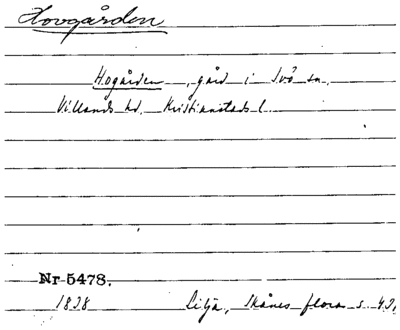 Hovgården
Hogården, gård i Ivö sn.
Villands hd. Kristianstads l.
Nr 5478.
1838 Lilja, Skånes flora s.